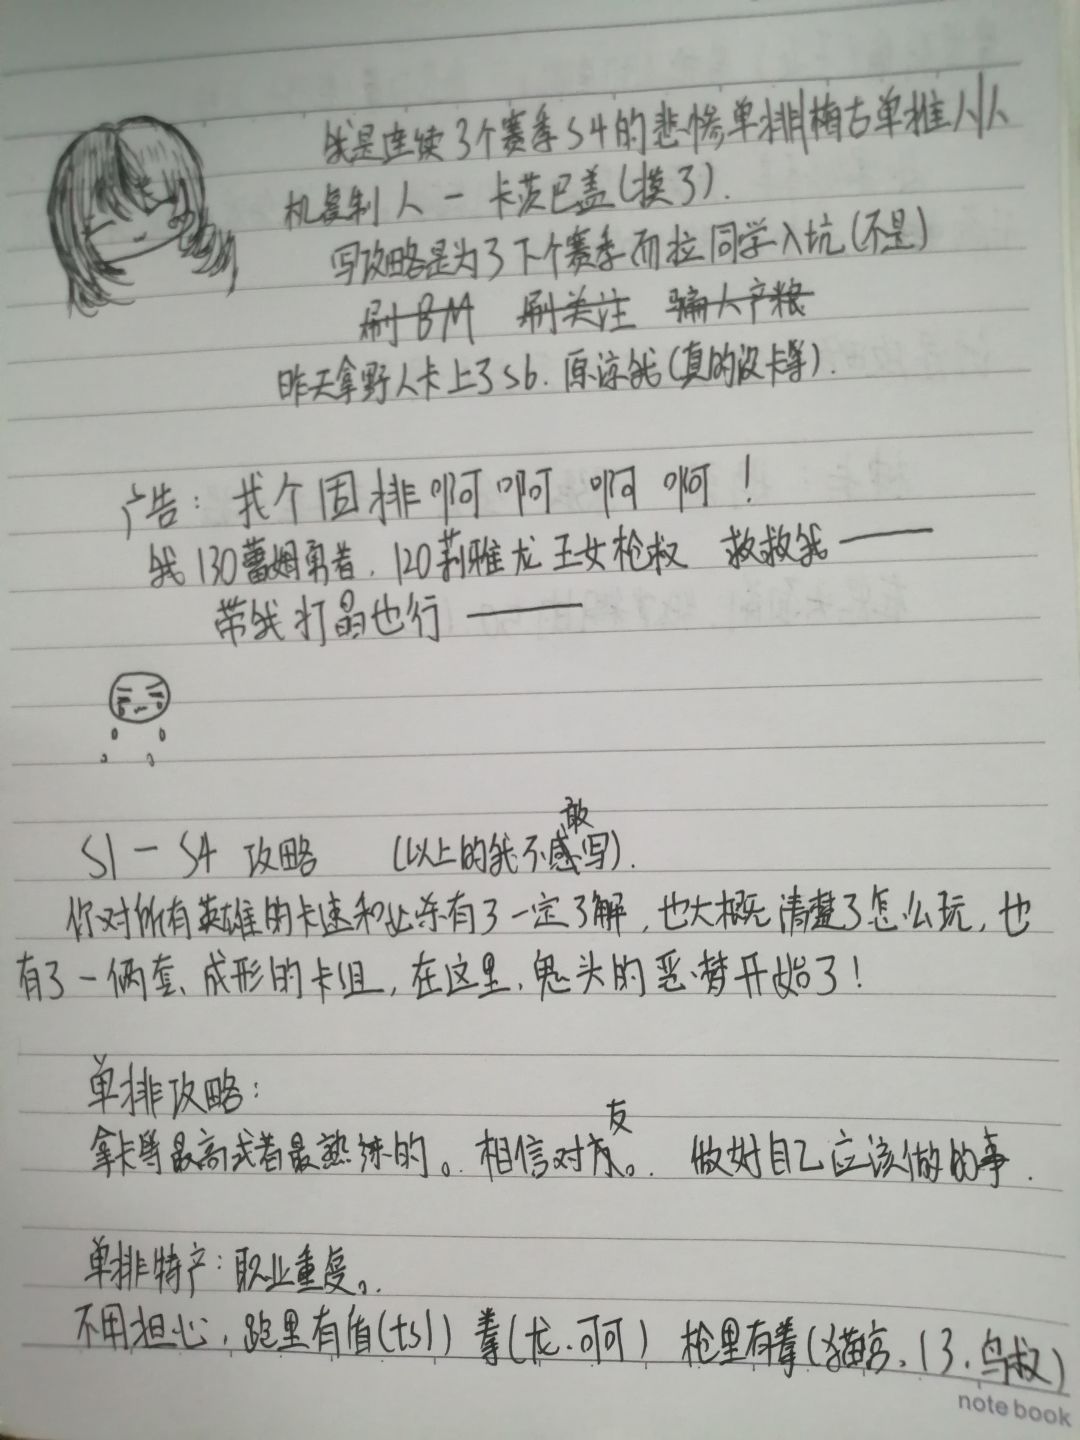 我是连续3个赛季S4的悲惨单排梅古单推人人
机复制人一卡茨巴盖(摸了).
写攻略是为了下个赛季而拉同学入坑(不是)
刷BM 刷关注 骗人产粮
昨天拿野人卡上了S6.原谅我(真的没卡等).
广告:找个固排啊啊啊啊!
我130蕾姆勇者.120莉雅龙王女枪叔 救救我——
带我打晶也行——
S1一S4攻略 (以上的我不敢写).
你对所有英雄的卡速和必杀有了一定了解,也大概清楚了怎么玩,也
有了一俩套、成形的卡组,在这里,鬼头的恶梦开始了!
单排攻略:
拿卡等最高或者最熟练的。相信对友。做好自己应该做的事.
单排特产:职业重复。
不用担心,跑里有盾(ts1)拳(龙.可可) 枪里有拳(猫宫、13.鸟叔)
note book